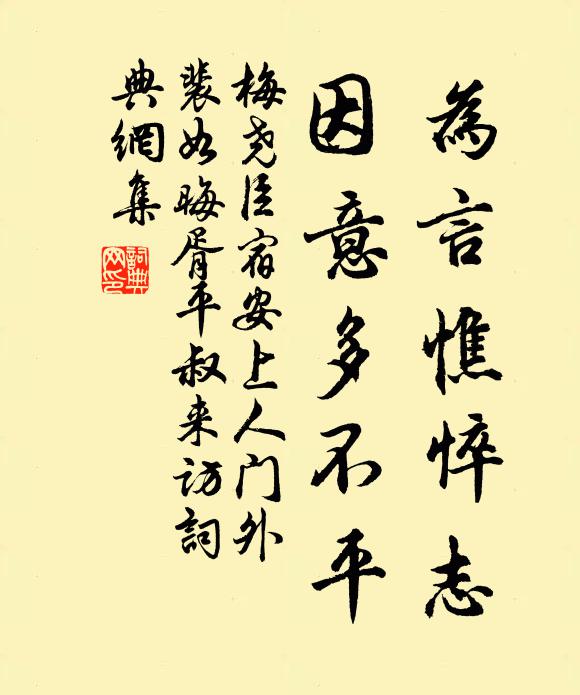 為言憔悴志
因意多不平
梅尧臣宿安上人門外
裴如晦胥平叔来訪詞
典網集
詞典網印